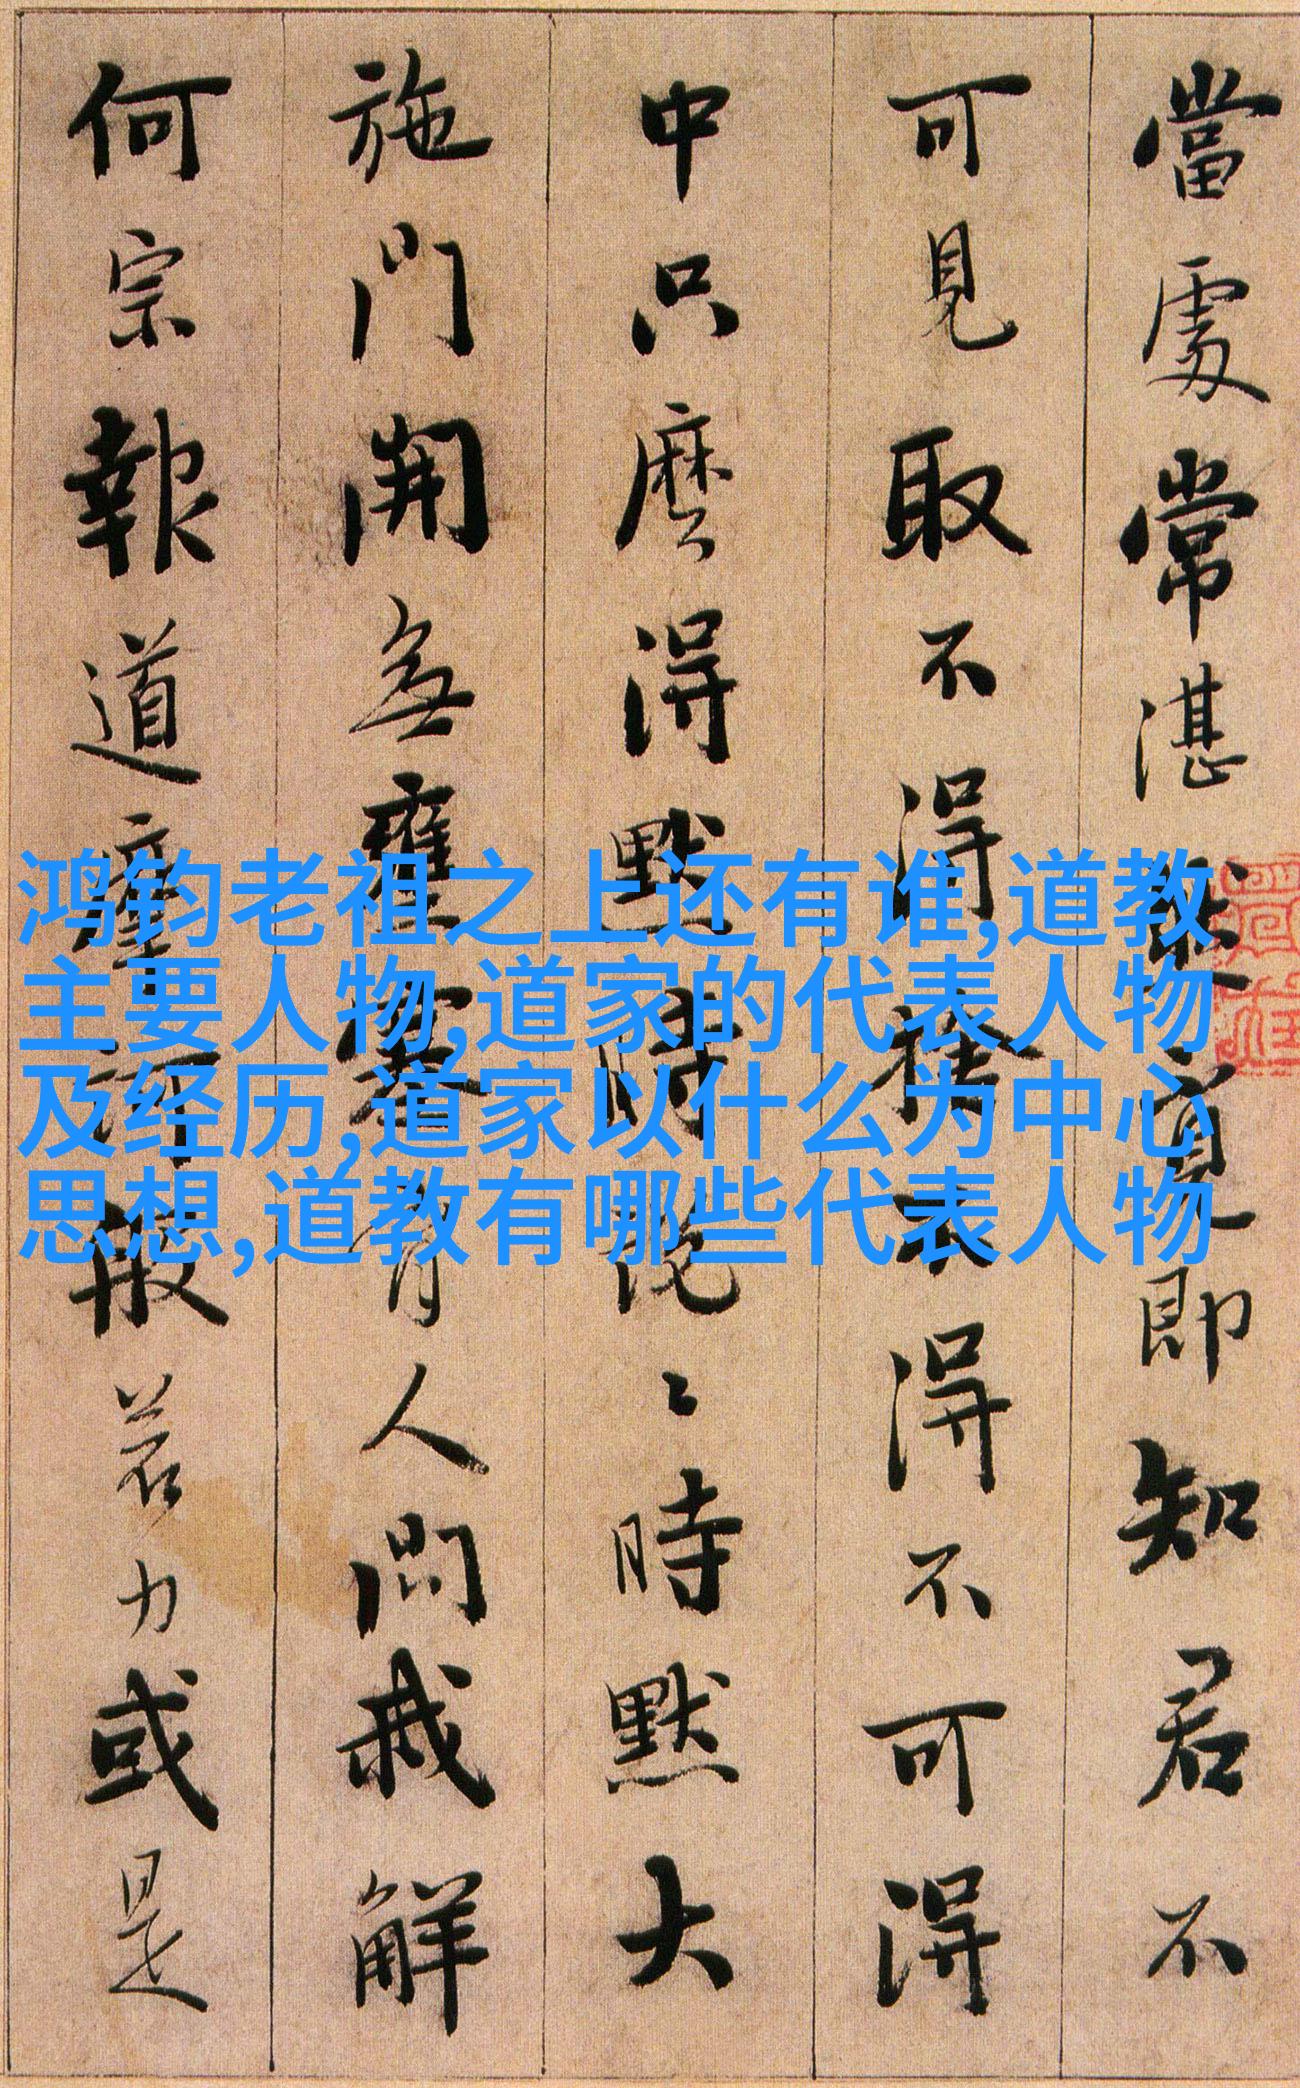 當處常湛然覓即知君不
可見取不得捨不得不可得
中只麼得默時說〻時默大
施門開無壅塞有人問我解
何宗報道摩訶般若力或是
鸿钧老祖之上还有谁,道教
主要人物,道家的代表人物
及经历,道家以什么为中心
思想,道教有哪些代表人物